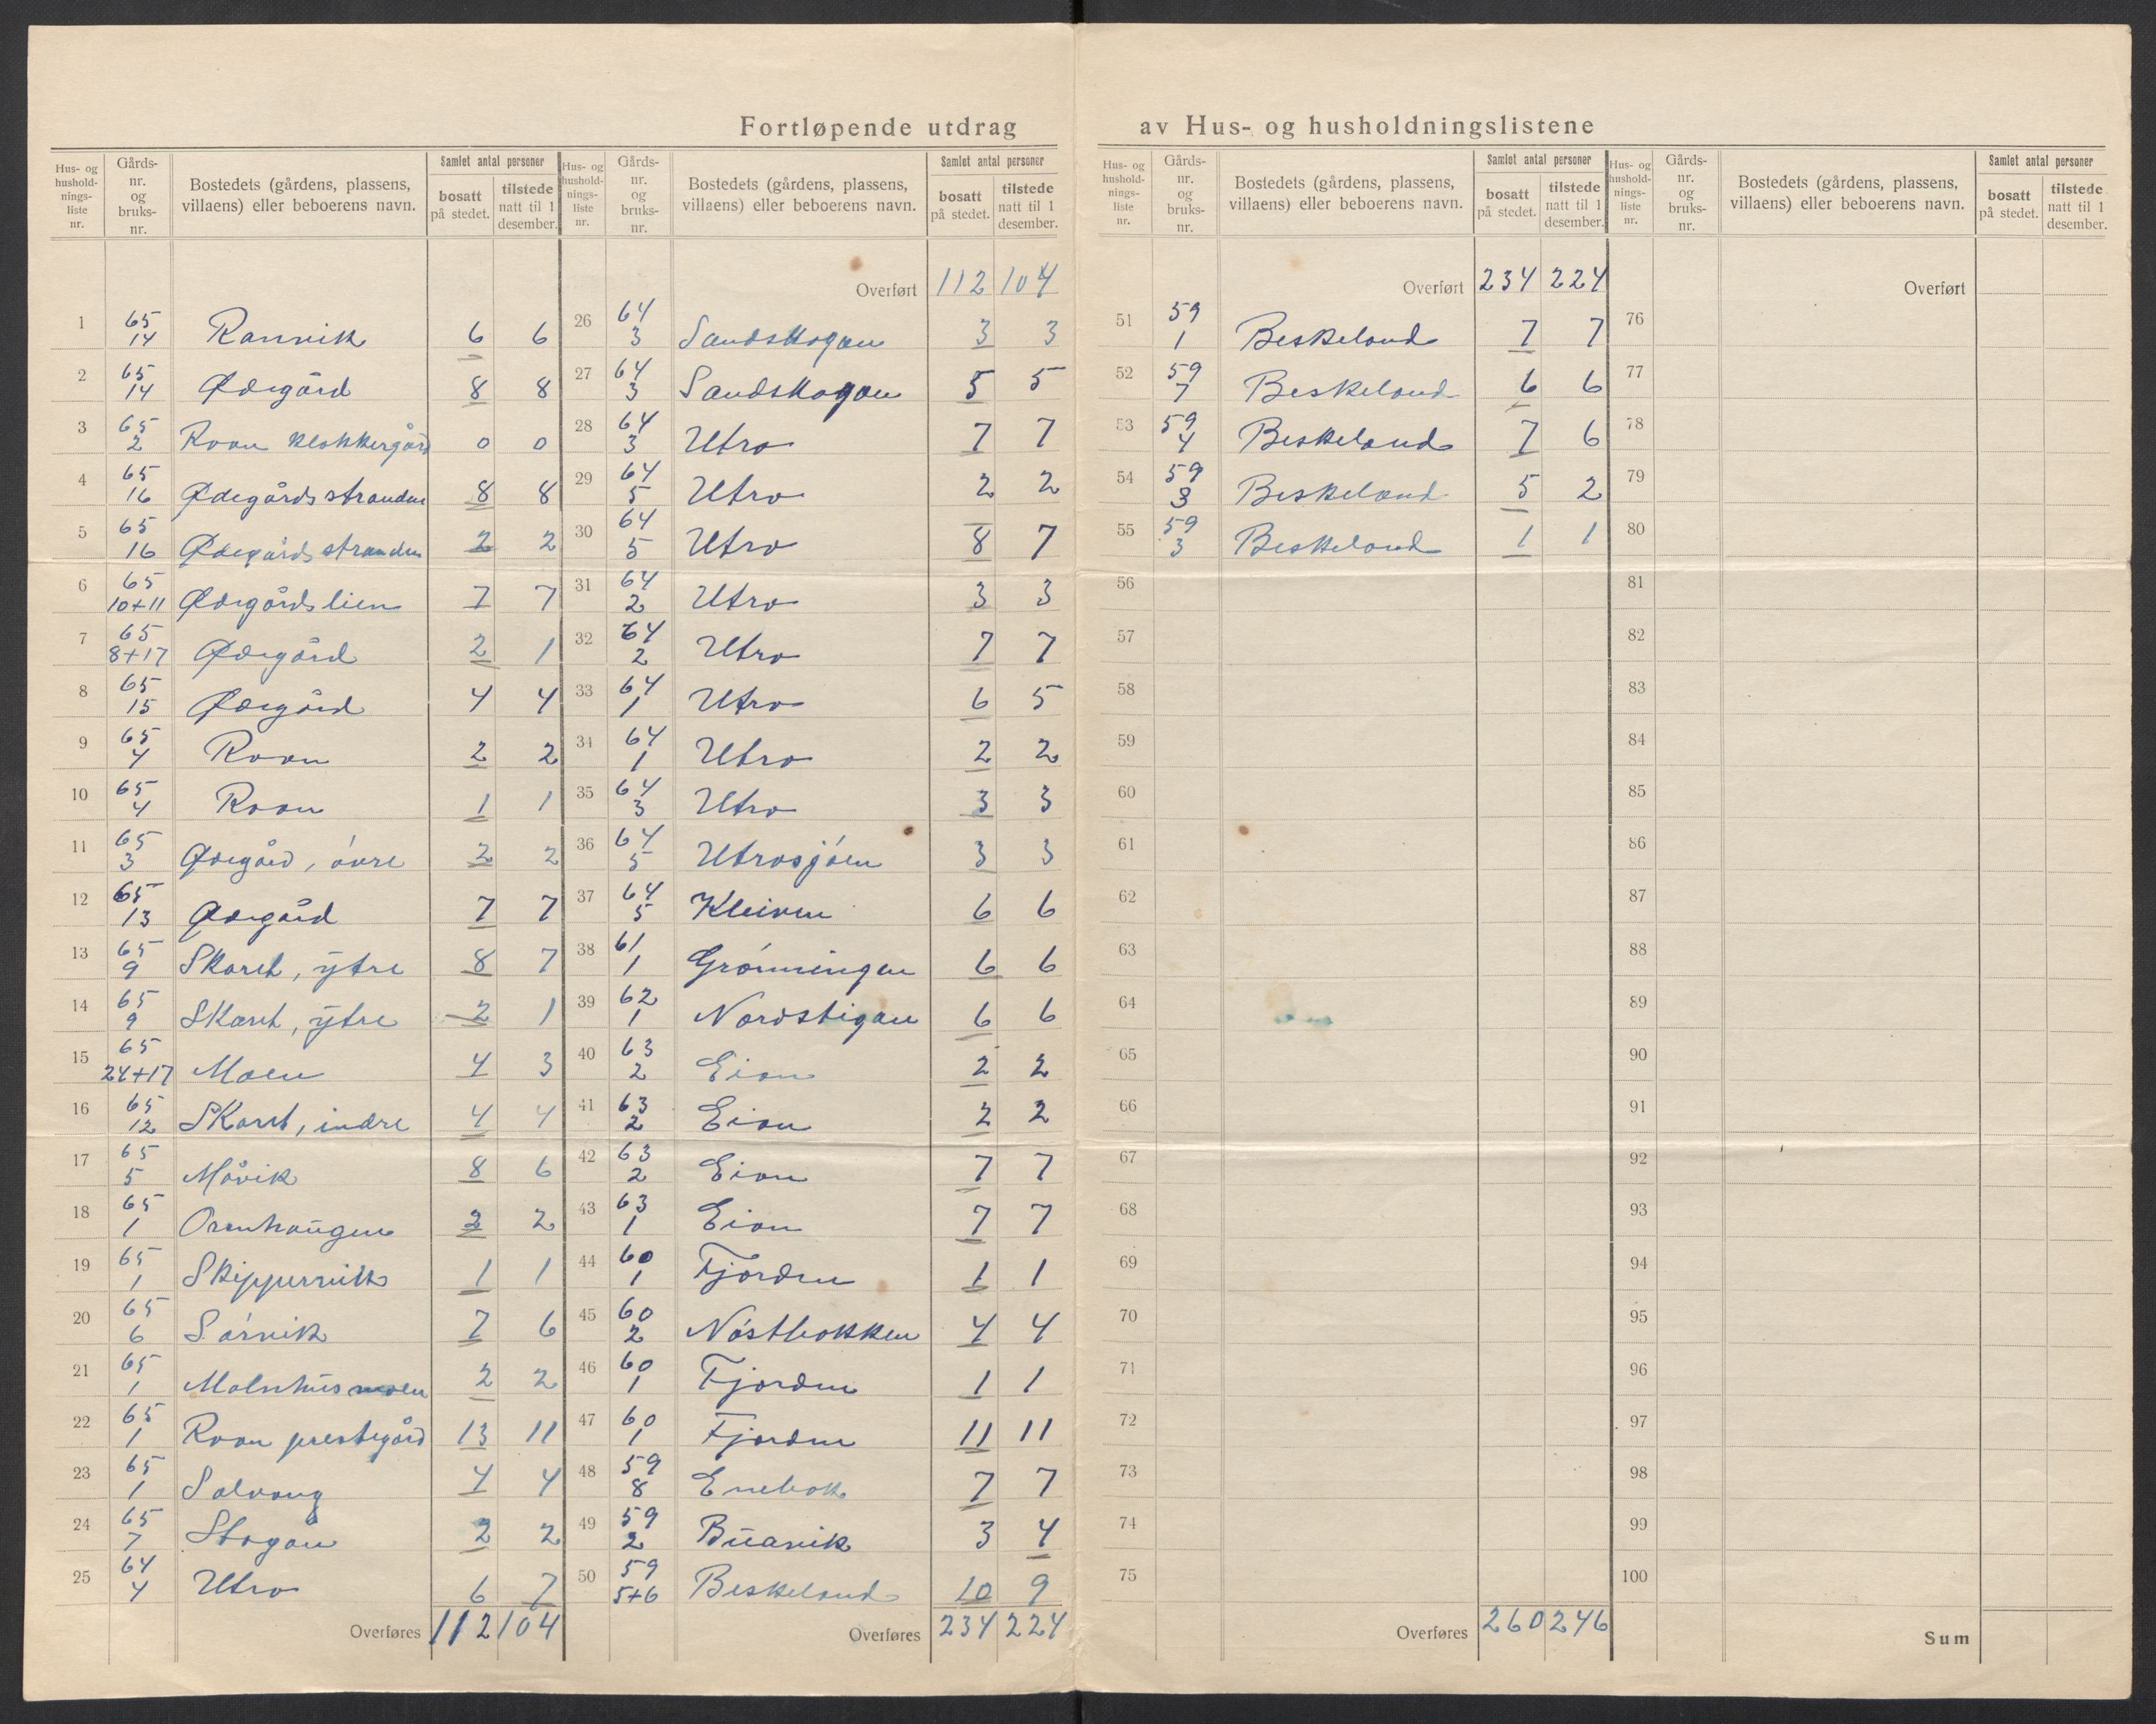 Fortløpende utdrag av Hus- og husholdningslistene
Hus- og husholdnings-liste nr. | Gårds-nr. og bruks-nr. | Bostedets (gårdens, plassens, villaens) eller beboerens navn. | Samlet antal personer | bosatt på stedet. | tilstede natt til 1 desember.
1 65/14 Ranvik 6 6
2 65/14 Ødegård 8 8
3 65/2 Roan Klokkergård 0 0
4 65/16 Ødegårdsstranden 8 8
5 65/16 Ødegårdsstranden 2 2
6 65/10+11 Ødegårdslien 7 7
7 65/8+17 Ødegård 2 1
8 65/15 Ødegård 4 4
9 65/4 Roan 2 2
10 65/4 Roan 1 1
11 65/3 Ødegård, óvre 2 2
12 65/13 Ødegård 7 7
13 65/9 Skaret, ytre 8 7
14 65/9 Skaret, ytre 2 1
15 65/24+17 Moen 4 3
16 65/12 Skaret, indre 4 4
17 65/5 Måvik 8 6
18 65/1 Ornhaugen 2 2
19 65/1 Skippervik 1 1
20 65/6 Sórvik 7 6
21 65/1 Malnhusmoen 2 2
22 65/1 Roan prestegård 13 11
23 65/1 Solvang 4 4
24 65/7 Stogan 2 2
25 64/4 Utro 6 7
Overføres 112 104
Hus- og husholdnings-liste nr. | Gårds-nr. og bruks-nr. | Bostedets (gårdens, plassens, villaens) eller beboerens navn. | Samlet antal personer | bosatt på stedet. | tilstede natt til 1 desember.
Overført 112 104
26 64/3 Sandskogan 3 3
27 64/3 Sandskogan 5 5
28 64/3 Utro 7 7
29 64/5 Utro 2 2
30 64/5 Utro 8 7
31 64/2 Utro 3 3
32 64/2 Utro 7 7
33 64/1 Utro 6 5
34 64/1 Utro 2 2
35 64/3 Utro 3 3
36 64/5 Utrosjóen 3 3
37 64/5 Kleiven 6 6
38 61/1 Grónningen 6 6
39 62/1 Nordstigan 6 6
40 63/2 Eian 2 2
41 63/2 Eian 2 2
42 63/2 Eian 7 7
43 63/1 Eian 7 7
44 60/1 Fjorden 1 1
45 60/2 Nóstbakken 4 4
46 60/1 Fjorden 1 1
47 60/1 Fjorden 11 11
48 59/8 Enebak 7 7
49 59/2 Buarvik 3 4
50 59/5+6 Beskeland 10 9
Overføres 234 224
Hus- og husholdnings-liste nr. | Gårds-nr. og bruks-nr. | Bostedets (gårdens, plassens, villaens) eller beboerens navn. | Samlet antal personer | bosatt på stedet. | tilstede natt til 1 desember.
Overført 234 224
51 59/1 Beskeland 7 7
52 59/7 Beskeland 6 6
53 59/4 Beskeland 7 6
54 59/3 Beskeland 5 2
55 59/3 Beskeland 1 1
56
57
58
59
60
61
62
63
64
65
66
67
68
69
70
71
72
73
74
75
Overføres 260 246
Hus- og husholdnings-liste nr. | Gårds-nr. og bruks-nr. | Bostedets (gårdens, plassens, villaens) eller beboerens navn. | Samlet antal personer | bosatt på stedet. | tilstede natt til 1 desember.
Overført
76
77
78
79
80
81
82
83
84
85
86
87
88
89
90
91
92
93
94
95
96
97
98
99
100
Sum